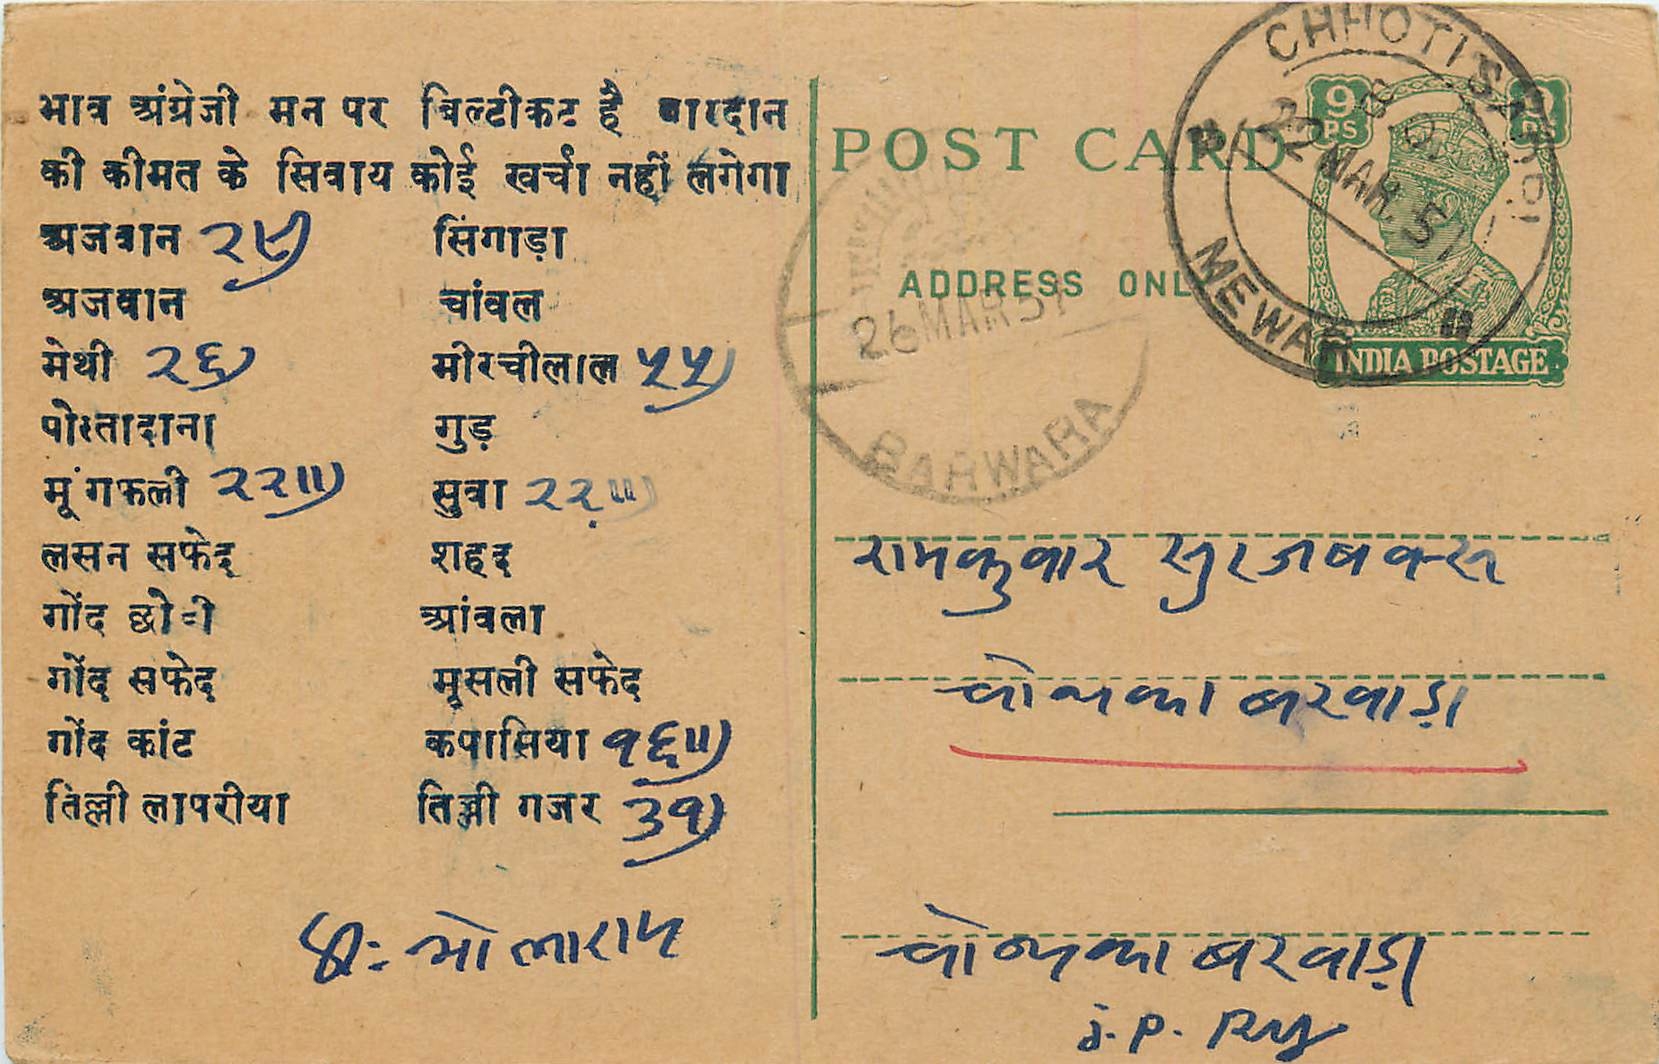 भाव अंग्रेजी मन पर बिल्टीकट है बारदान
की कीमत के सिवाय कोई खर्चा नहीं लगेगा
अजवान २९) सिंगाड़ा
अजवान चांवल
मेथी २६) मीरचीलाल ५५)
पोस्तादाना गुड़
मूंगफली २२॥) सुवा २२॥)
लसन सफेद शहद
गोंद छोटी आंवला
गोंद सफेद मूसली सफेद
गोंद कांट कपासिया १६॥)
तिल्ली लापरीया तिल्ली गजर ३१)
द: भोलाराम
POST CARD
ADDRESS ONLY
9 PS
INDIA POSTAGE
CHHOTI SADRI
22 MAR. 51
MEWAR
26 MAR 51
BARWARA
रामकुवार सुरजबक्स
चोथका बरवाड़ा
चोथका बरवाड़ा
J.P. Rly